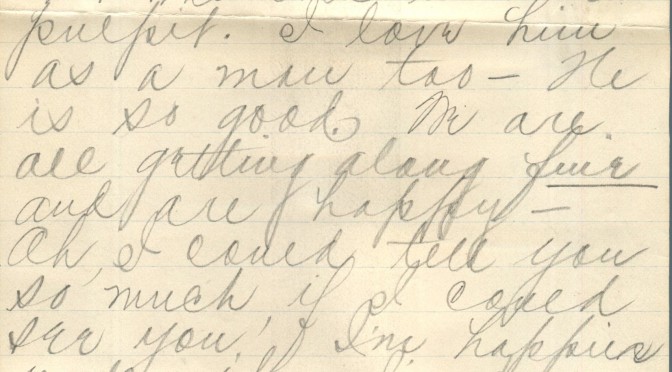 pulpit. I love him
as a man too – He
is so good. We are
all getting along fine
and are happy –
Oh, I could tell you
so much, if I could
see you! I'm happier